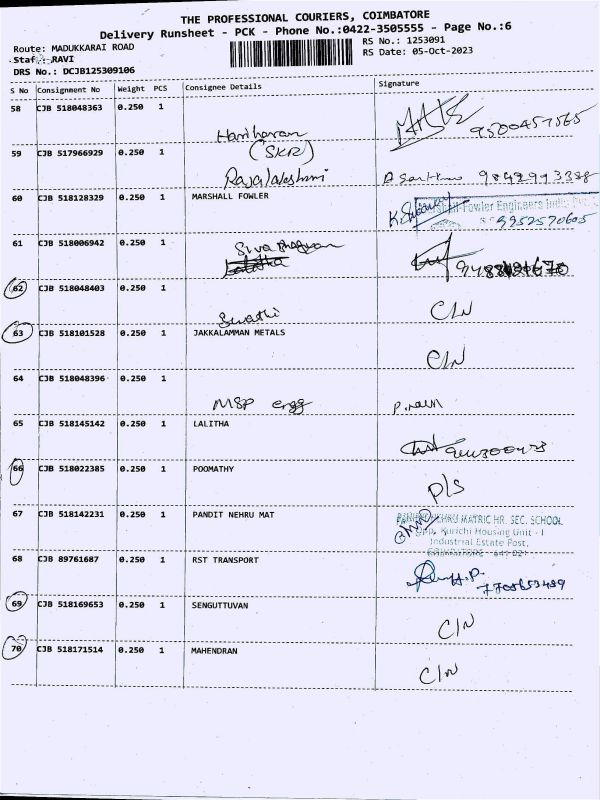 THE PROFESSIONAL COURIERS, COIMBATORE
Delivery Runsheet - PCK - Phone No.:0422-3505555 - Page No.:6
Route: MADUKKARAI ROAD
RS No.: 1253091
Staff : RAVI
RS Date: 05-Oct-2023
DRS No.: DCJB125309106
S No Consignment No Weight PCS Consignee Details Signature
58 CJB 518048363 0.250 1
Hariharan 9500457565
(SKR)
59 CJB 517966929 0.250 1
Rajalakshmi 9842993388
60 CJB 518128329 0.250 1 MARSHALL FOWLER
Fowler Engineers
9952570605
61 CJB 518006942 0.250 1
62 CJB 518048403 0.250 1 C/N
Swathi
63 CJB 518101528 0.250 1 JAKKALAMMAN METALS
C/N
64 CJB 518048396 0.250 1
MSP engg
65 CJB 518145142 0.250 1 LALITHA
66 CJB 518022385 0.250 1 POOMATHY
D/S
67 CJB 518142231 0.250 1 PANDIT NEHRU MAT
MATRIC HR. SEC. SCHOOL
Kurichi Housing Unit - I
Industrial Estate Post,
COIMBATORE - 641 021
68 CJB 89761687 0.250 1 RST TRANSPORT
7708653489
69 CJB 518169653 0.250 1 SENGUTTUVAN
C/N
70 CJB 518171514 0.250 1 MAHENDRAN
C/N